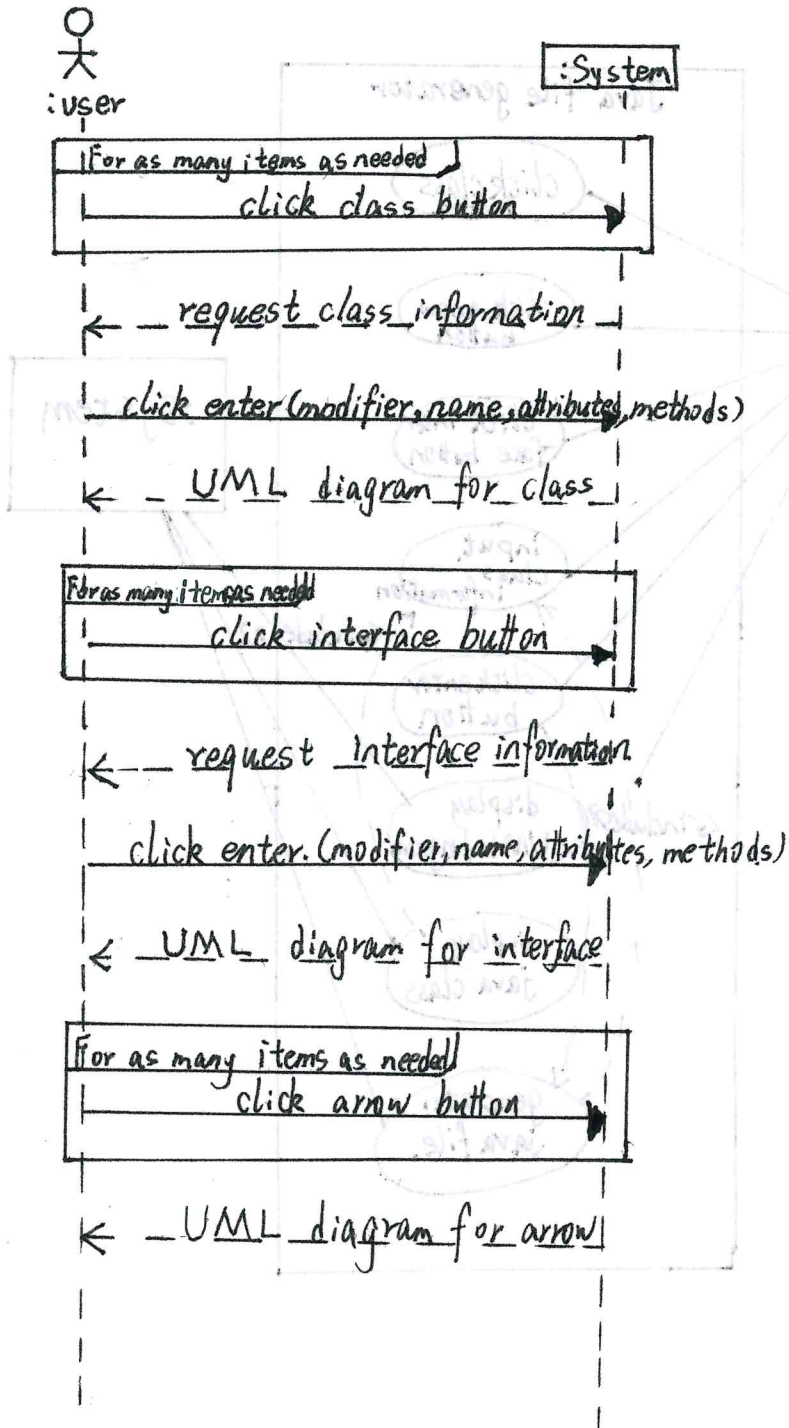 :user
:System
For as many items as needed
click class button
request class information
click enter (modifier, name, attributes, methods)
UML diagram for class
For as many items as needed
click interface button
request interface information.
click enter. (modifier, name, attributes, methods)
UML diagram for interface
For as many items as needed
click arrow button
UML diagram for arrow